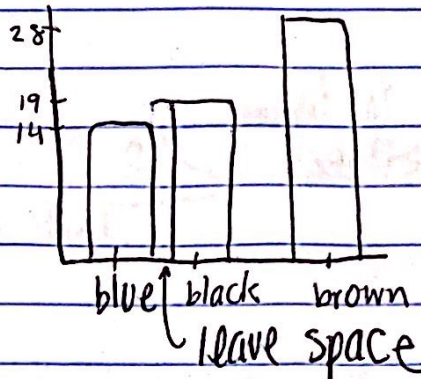 28
19
14
blue black brown
leave space